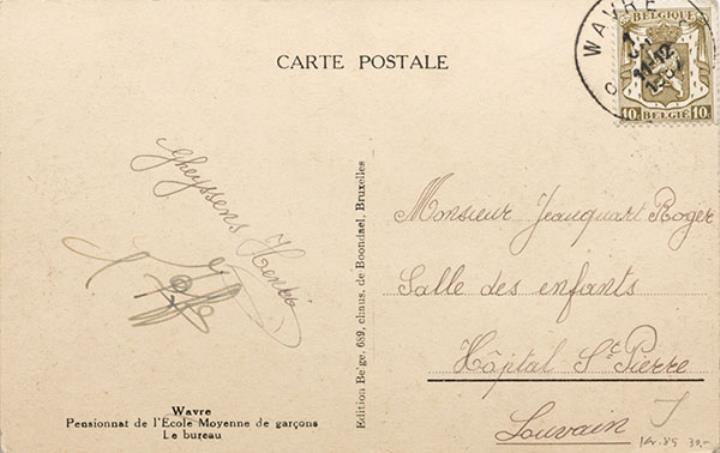 CARTE POSTALE
WAVRE
BELGIQUE
11-12
10c BELGIË 10c
Gheyssens Henri
Edition Belge, 689, chaus. de Boondael, Bruxelles
Monsieur Jeauquart Roger
Salle des enfants
Hôpital St Pierre
Louvain
Wavre
Pensionnat de l'École Moyenne de garçons
Le bureau
30.-